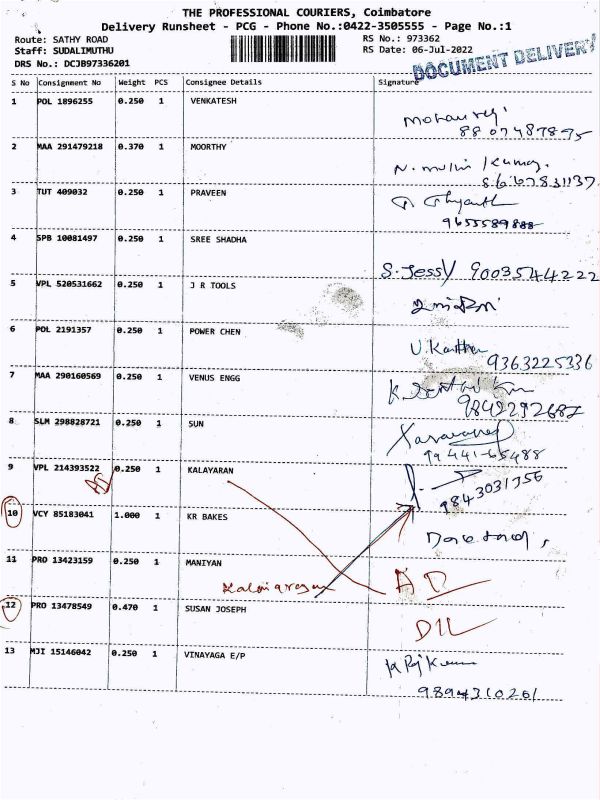 THE PROFESSIONAL COURIERS, Coimbatore
Delivery Runsheet - PCG - Phone No.:0422-3505555 - Page No.:1
Route: SATHY ROAD
RS No.: 973362
Staff: SUDALIMUTHU
RS Date: 06-Jul-2022
DRS No.: DCJB97336201
DOCUMENT DELIVERY
S No Consignment No Weight PCS Consignee Details Signature
1 POL 1896255 0.250 1 VENKATESH
8807487895
2 MAA 291479218 0.370 1 MOORTHY
8667831137
3 TUT 409032 0.250 1 PRAVEEN
9655589888
4 SPB 10081497 0.250 1 SREE SHADHA
S. Jessy 9003544222
5 VPL 520531662 0.250 1 J R TOOLS
6 POL 2191357 0.250 1 POWER CHEN
9363225336
7 MAA 290160569 0.250 1 VENUS ENGG
8 SLM 298828721 0.250 1 SUN
99441-65488
9 VPL 214393522 0.250 1 KALAYARAN
9843031356
10 VCY 85183041 1.000 1 KR BAKES
11 PRO 13423159 0.250 1 MANIYAN
AD
12 PRO 13478549 0.470 1 SUSAN JOSEPH
D1L
13 MJI 15146042 0.250 1 VINAYAGA E/P
9894310261